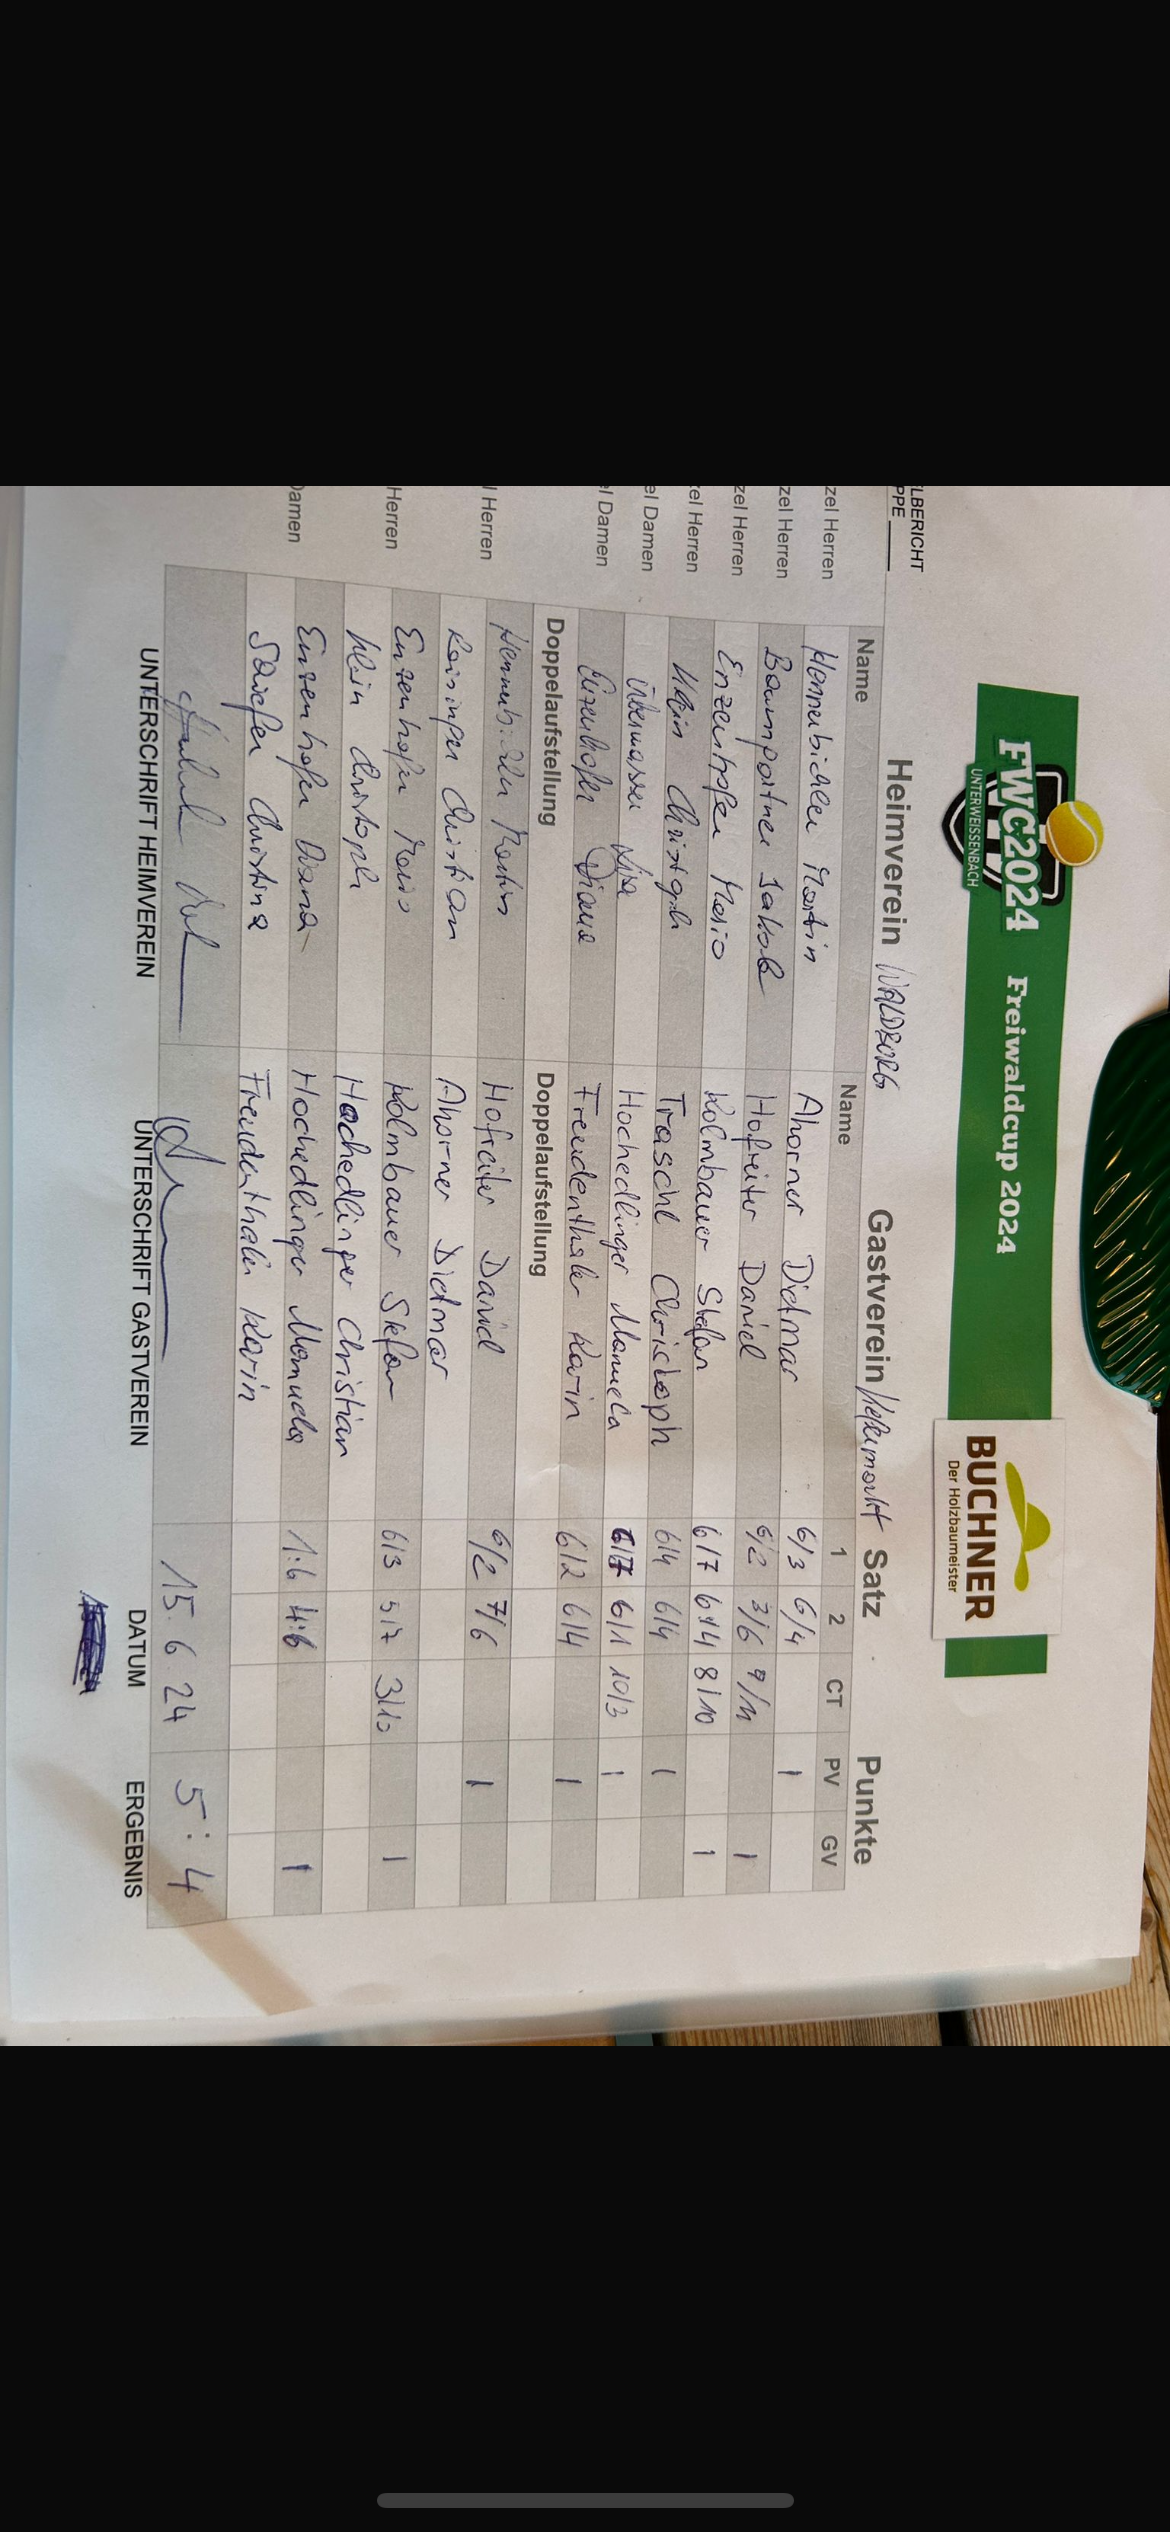 FWC2024 Freiwaldcup 2024
UNTERWEISSENBACH
BUCHNER
Der Holzbaumeister
LBERICHT
PPE
Heimverein WALDBURG Gastverein Kefermarkt Satz Punkte
Name Name 1 2 CT PV GV
zel Herren Hennerbichler Martin Ahorner Dietmar 6/3 6/4 1
zel Herren Baumgartner Jakob Hofreiter Daniel 6/2 3/6 9/11 1
zel Herren Enzenhofer Mario Kolmbauer Stefan 6/7 6/4 8/10 1
zel Herren Klein Christoph Traschl Christoph 6/4 6/4 1
el Damen Überwasser Lisa Hochedlinger Manuela 6/7 6/1 10/3 1
el Damen Enzenhofer Diana Freudenthaler Karin 6/2 6/4 1
Doppelaufstellung Doppelaufstellung
l Herren Hennerbichler Martin Hofreiter Daniel 6/2 7/6 1
Reisinger Christian Ahorner Dietmar
Herren Enzenhofer Mario Kolmbauer Stefan 6/3 5/7 3/10 1
Klein Christoph Hochedlinger Christian
Damen Enzenhofer Diana Hochedlinger Manuela 1:6 4:6 1
Schiefer Christina Freudenthaler Karin
15.6.24 5:4
UNTERSCHRIFT HEIMVEREIN UNTERSCHRIFT GASTVEREIN DATUM ERGEBNIS